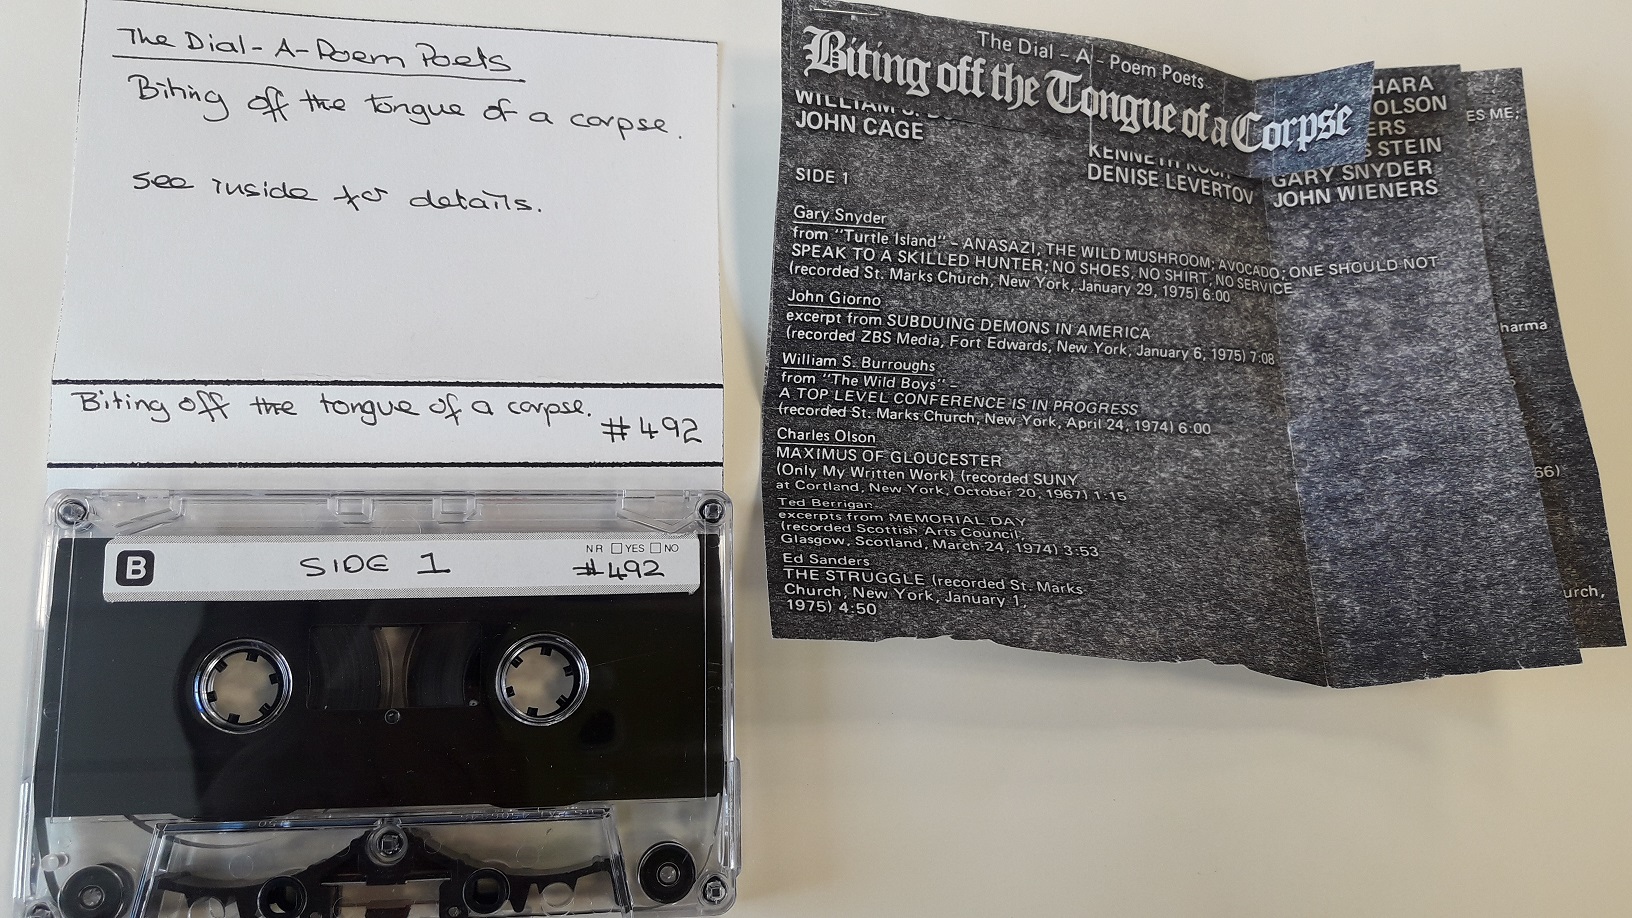 The Dial-A-Poem Poets
Biting off the tongue of a corpse.
see inside for details.
Biting off the tongue of a corpse.
#492
B
SIDE 1
NR YES NO
#492
The Dial-A-Poem Poets
Biting off the Tongue of a Corpse
WILLIAM S.
JOHN CAGE
KENNETH KOCH
DENISE LEVERTOV
HARA
OLSON
ERS
S STEIN
GARY SNYDER
JOHN WIENERS
SIDE 1
Gary Snyder
from "Turtle Island" - ANASAZI; THE WILD MUSHROOM; AVOCADO; ONE SHOULD NOT
SPEAK TO A SKILLED HUNTER; NO SHOES, NO SHIRT, NO SERVICE
(recorded St. Marks Church, New York, January 29, 1975) 6:00
John Giorno
excerpt from SUBDUING DEMONS IN AMERICA
(recorded ZBS Media, Fort Edwards, New York, January 6, 1975) 7:08
William S. Burroughs
from "The Wild Boys" -
A TOP LEVEL CONFERENCE IS IN PROGRESS
(recorded St. Marks Church, New York, April 24, 1974) 6:00
Charles Olson
MAXIMUS OF GLOUCESTER
(Only My Written Work) (recorded SUNY
at Cortland, New York, October 20, 1967) 1:15
Ted Berrigan
excerpts from MEMORIAL DAY
(recorded Scottish Arts Council,
Glasgow, Scotland, March 24, 1974) 3:53
Ed Sanders
THE STRUGGLE (recorded St. Marks
Church, New York, January 1,
1975) 4:50
ES ME;
harma
66)
urch,